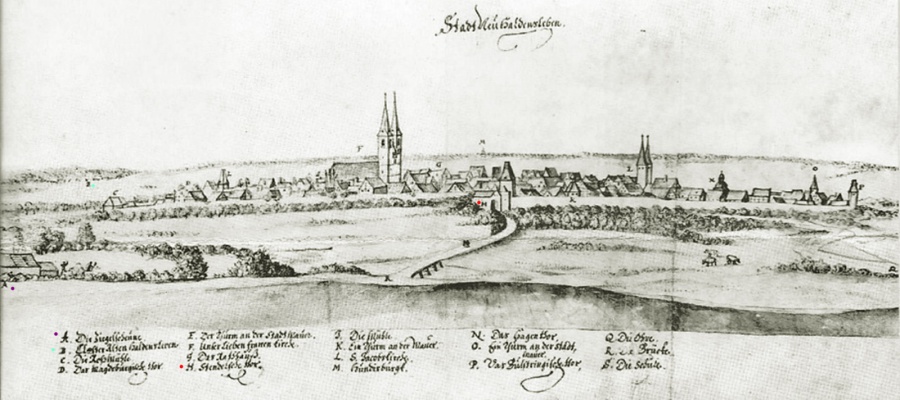 Stadt Neuhaldensleben.
A. Die Ziegelscheune.
B. Closter Alten Haldensleven.
C. Die Roßmühle.
D. Das Magdeburgische thor.
E. Der Thurm an der Stadtmauer.
F. Unser Lieben frauen Kirche.
G. Das Rathhauß.
H. Stendelsche thor.
J. Die Mühle.
K. Ein Thurm an der Mauer.
L. S. Jacobs Kirche.
M. Hundisburgk.
N. Das Hagenthor.
O. Ein Thurm an der Stadt,
mauer.
P. Das Bülstringische thor.
Q. Die Ohre.
R. Brücke.
S. Die Schule.